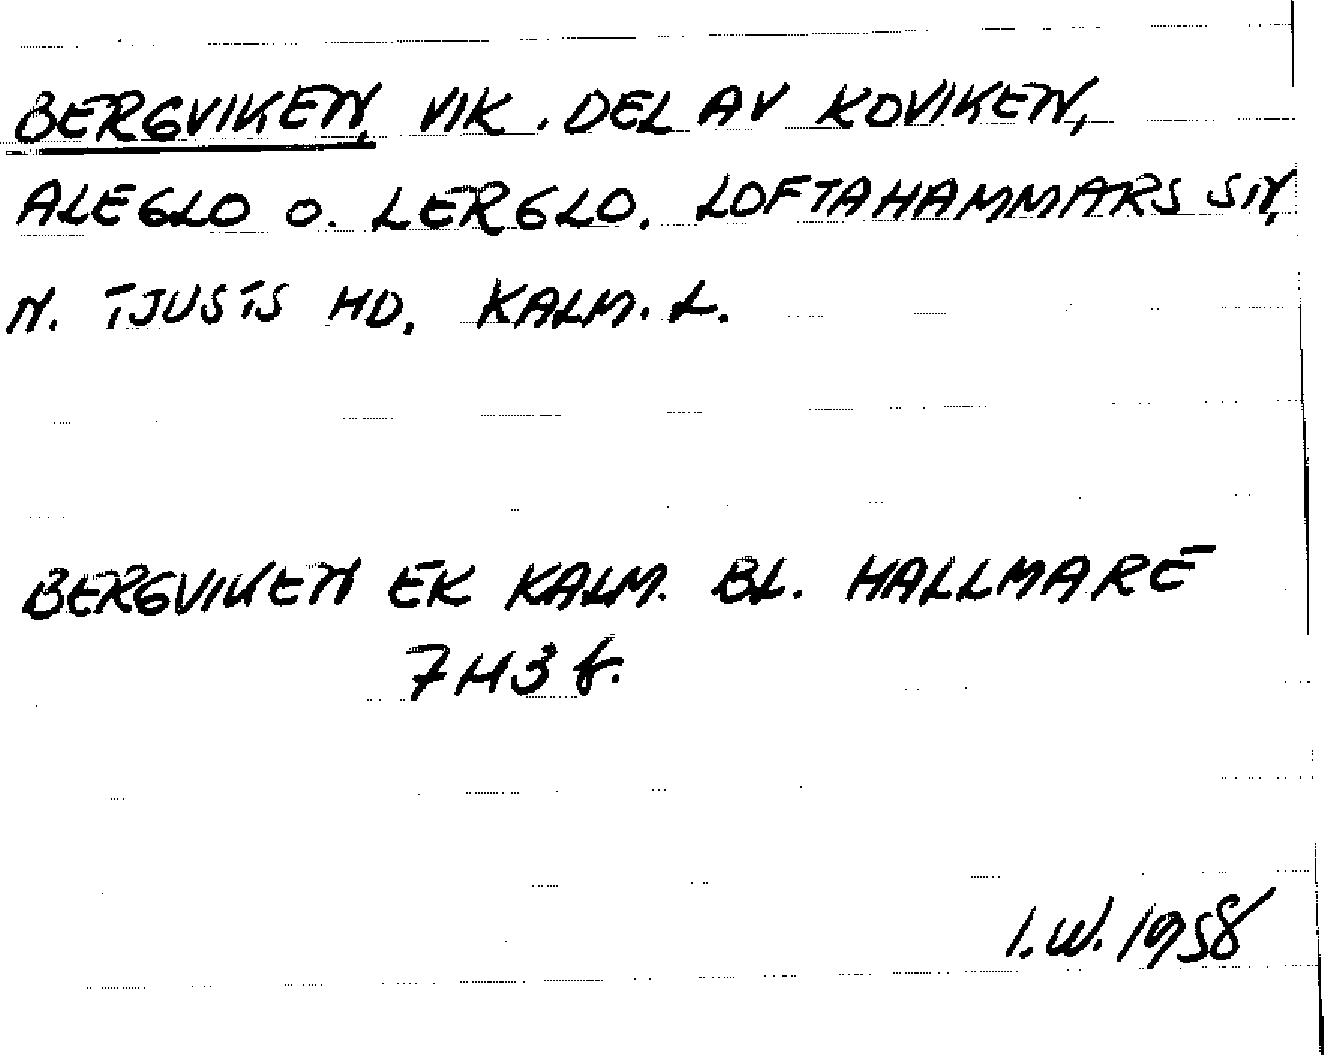 BERGVIKEN, VIK. DEL AV KOVIKEN,
ALEGLO O. LERGLO. LOFTAHAMMARS SN,
N. TJUSTS HD. KALM. L.
BERGVIKEN EK KALM. BL. HALLMARE
7H3f.
I.W. 1958